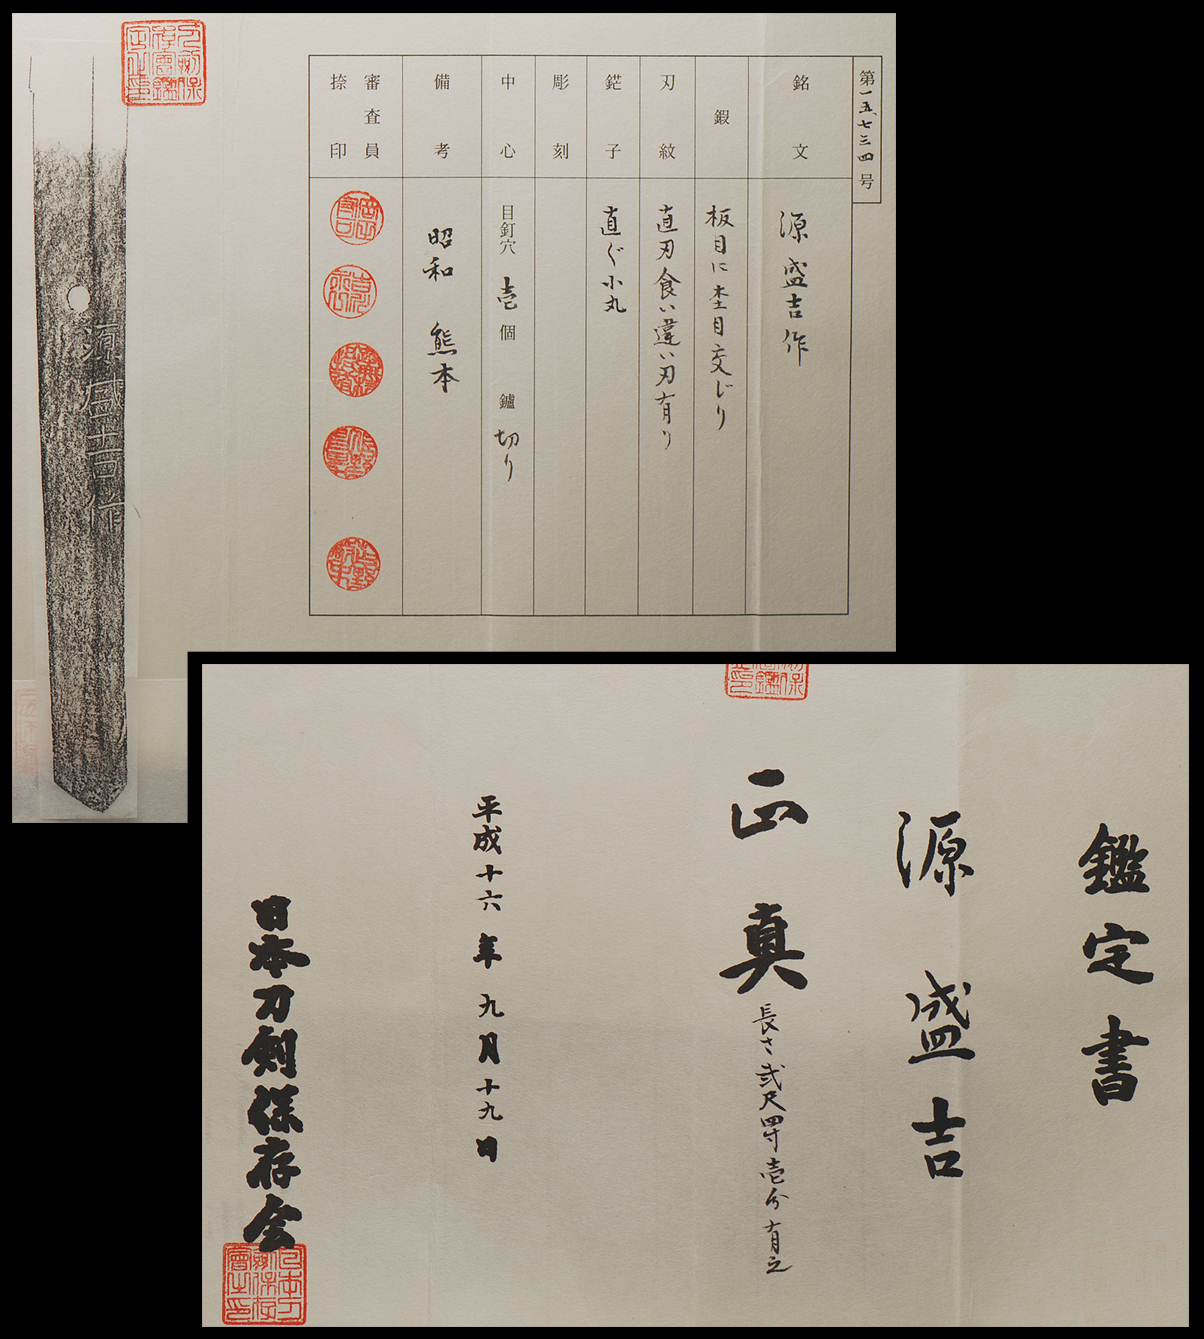 第一五、七三四号
銘文
源盛吉作
鍜
板目に杢目交じり
刃紋
直刃食い違い刃有り
鋩子
直ぐ小丸
彫刻
中心
目釘穴 壱個 鑢 切り
備考
昭和 熊本
審査員
捺印
源盛吉作
鑑定書
源盛吉
正真
長さ弐尺四寸壱分有之
平成十六年九月十九日
日本刀剣保存会